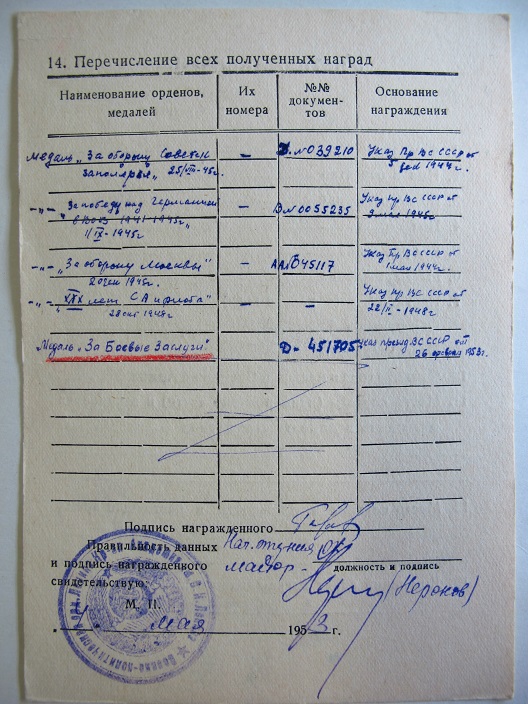 14. Перечисление всех полученных наград
Наименование орденов, медалей
Их номера
№№ документов
Основание награждения
Медаль „За оборону Советск – № 039210 Указ Пр ВС СССР от
заполярья" 25/VIII-45г. 5 дек 1944г.
-"- За победу над Германией – В № 0055235 Указ Пр ВС СССР от
в ВОВ 1941-1945г" 9 мая 1945г
1/IX-1945г
-"- „За оборону Москвы" – 45117 Указ Пр ВС СССР от
1945г. 1 мая 1944г.
-"- „XXX лет СА и флота" – – Указ Пр ВС СССР от
1948г 22/II-1948г
Медаль „За Боевые Заслуги" Д- 451705 Указ През. ВС СССР от
26 февраля 1953г.
Подпись награжденного
Правильность данных Нач. отдела
и подпись награжденного майор должность и подпись
свидетельствую:
М. П.
мая 1953 г.